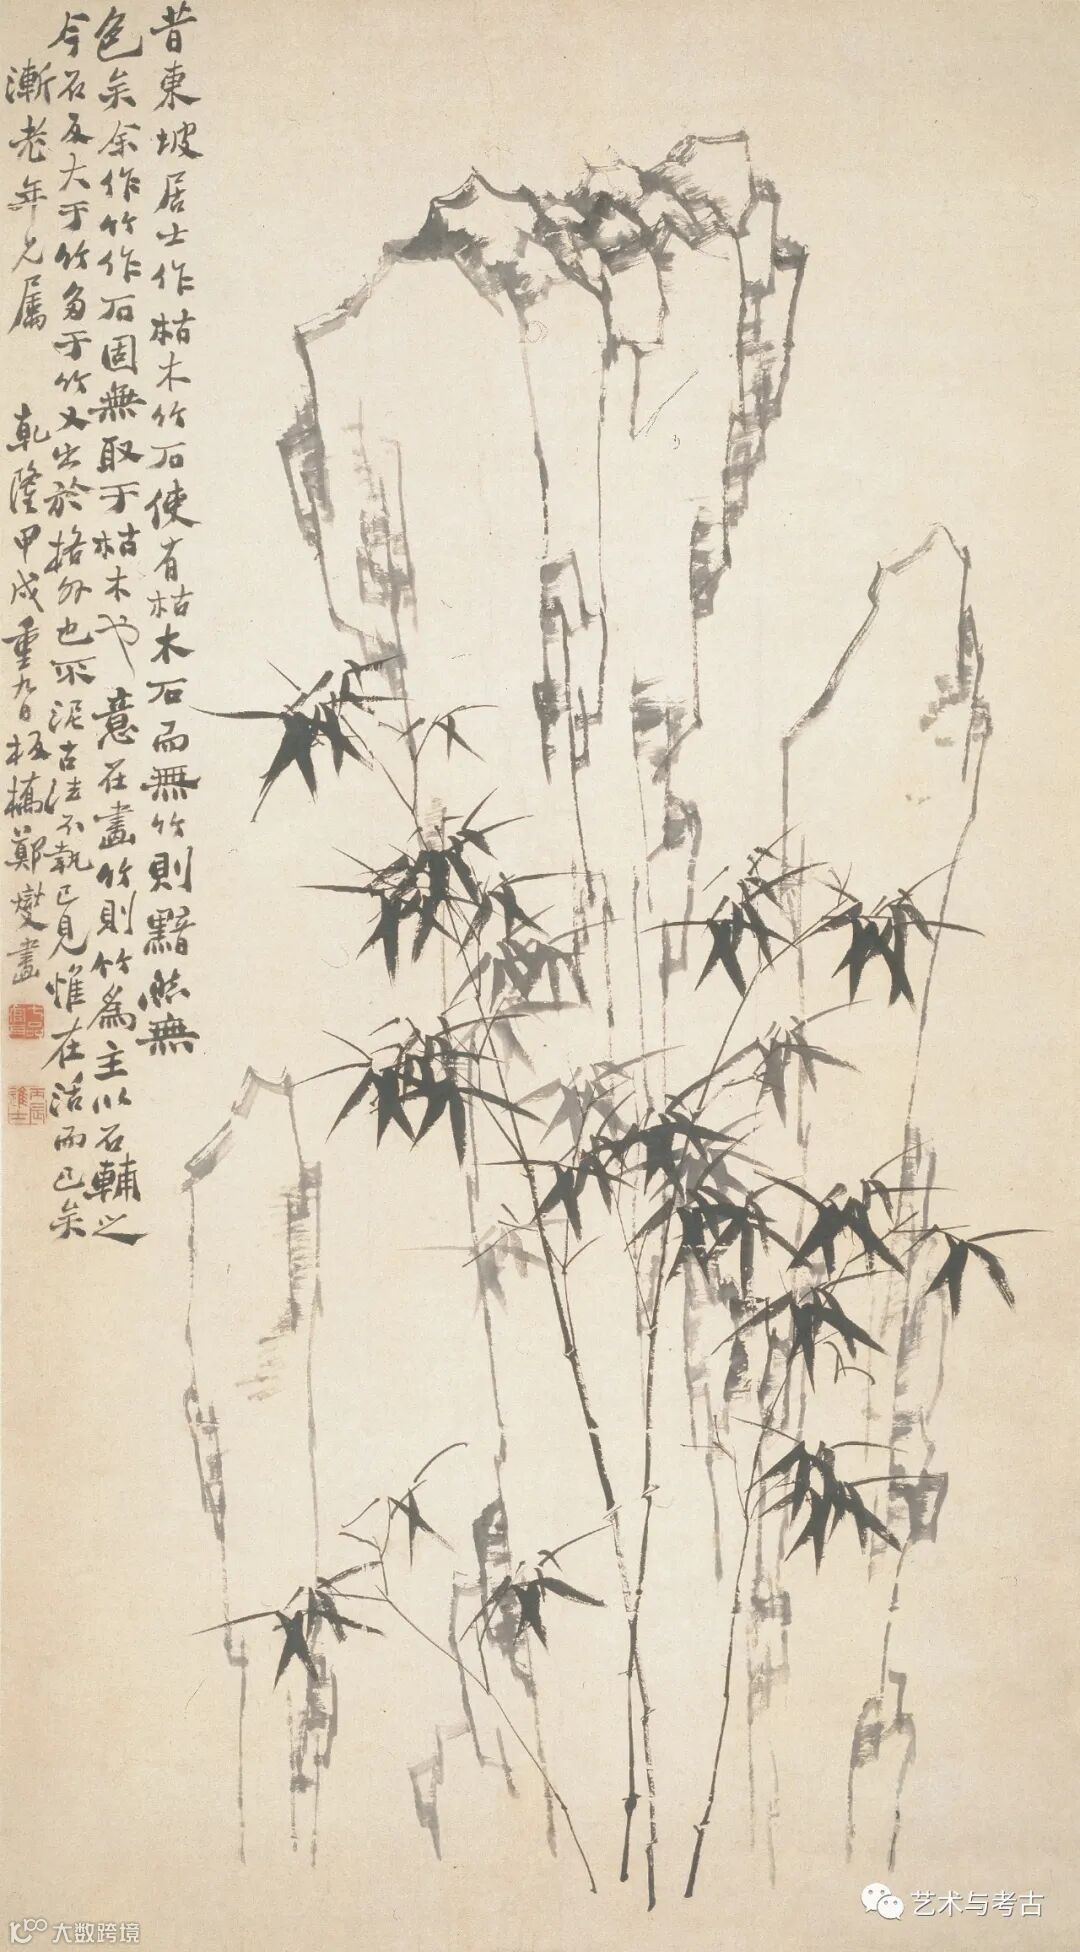 昔東坡居士作枯木竹石使有枯木石而無竹則黯然無
色矣余作竹作石固無取于枯木也意在畫竹則竹為主以石輔之
今石反大于竹多于竹又出於格外也不泥古法不執己見惟在活而已矣
漸老年兄屬 乾隆甲戌重九日板橋鄭燮畫
丙辰進士
艺术与考古
大数跨境